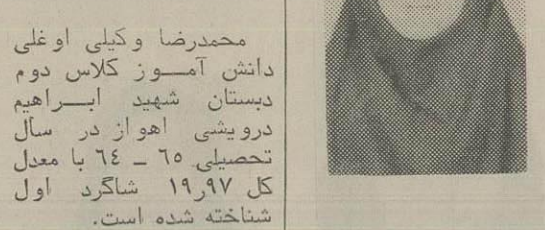 محمدرضا وکیلی اوغلی
دانش آمــوز کلاس دوم
دبستان شهید ابــراهیم
درویشی اهواز در سال
تحصیلی ٦٥ ــ ٦٤ با معدل
کل ۱۹٫۹۷ شاگرد اول
شناخته شده است.